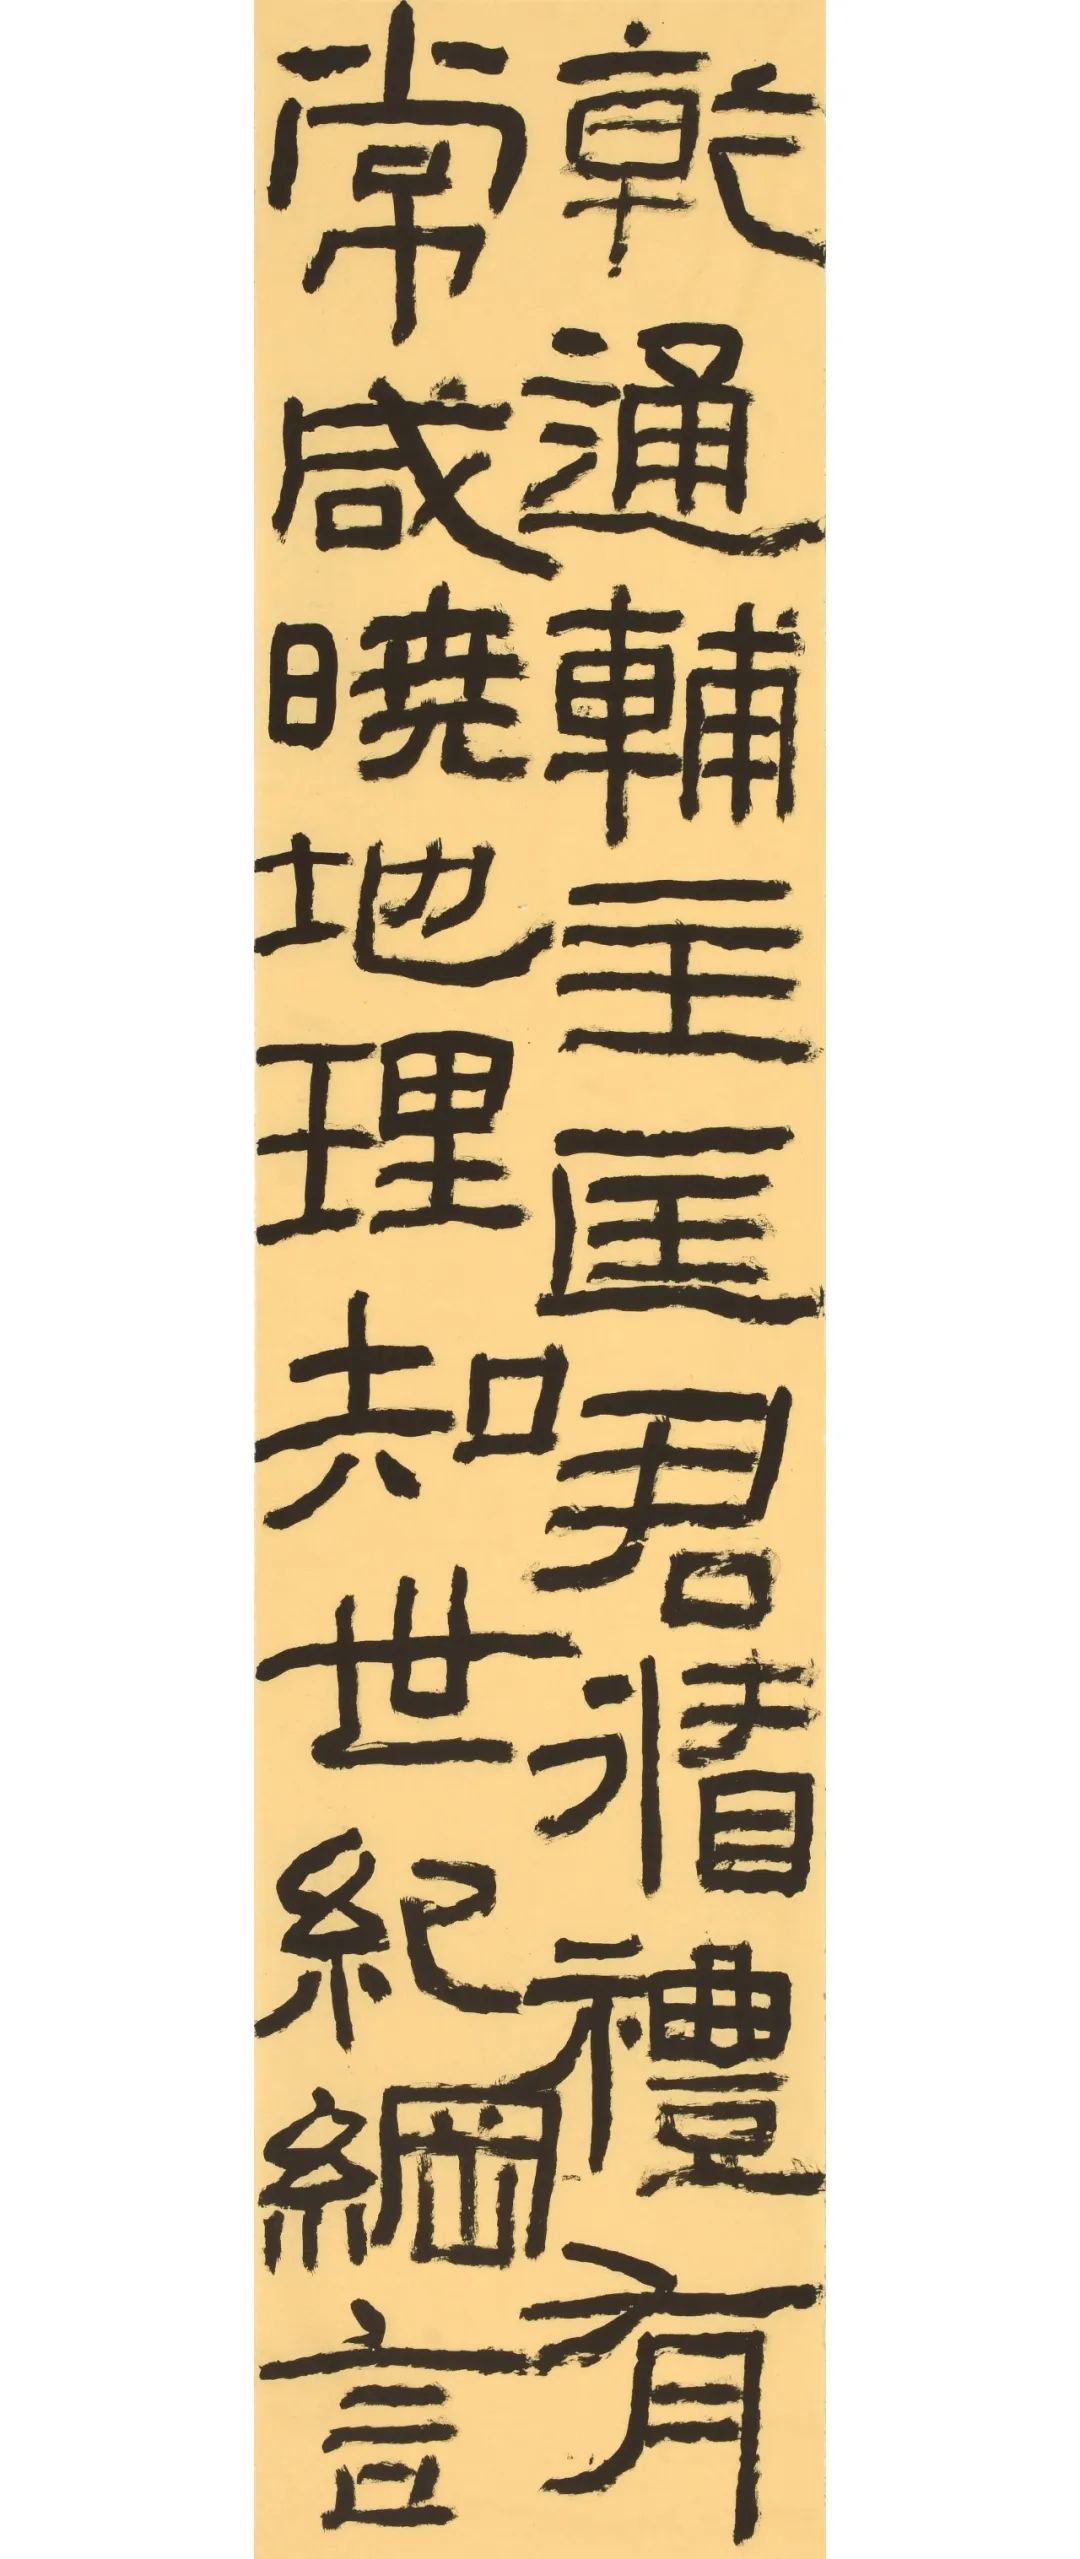 乾通輔主匡君循禮有
常咸曉地理知世紀綱言